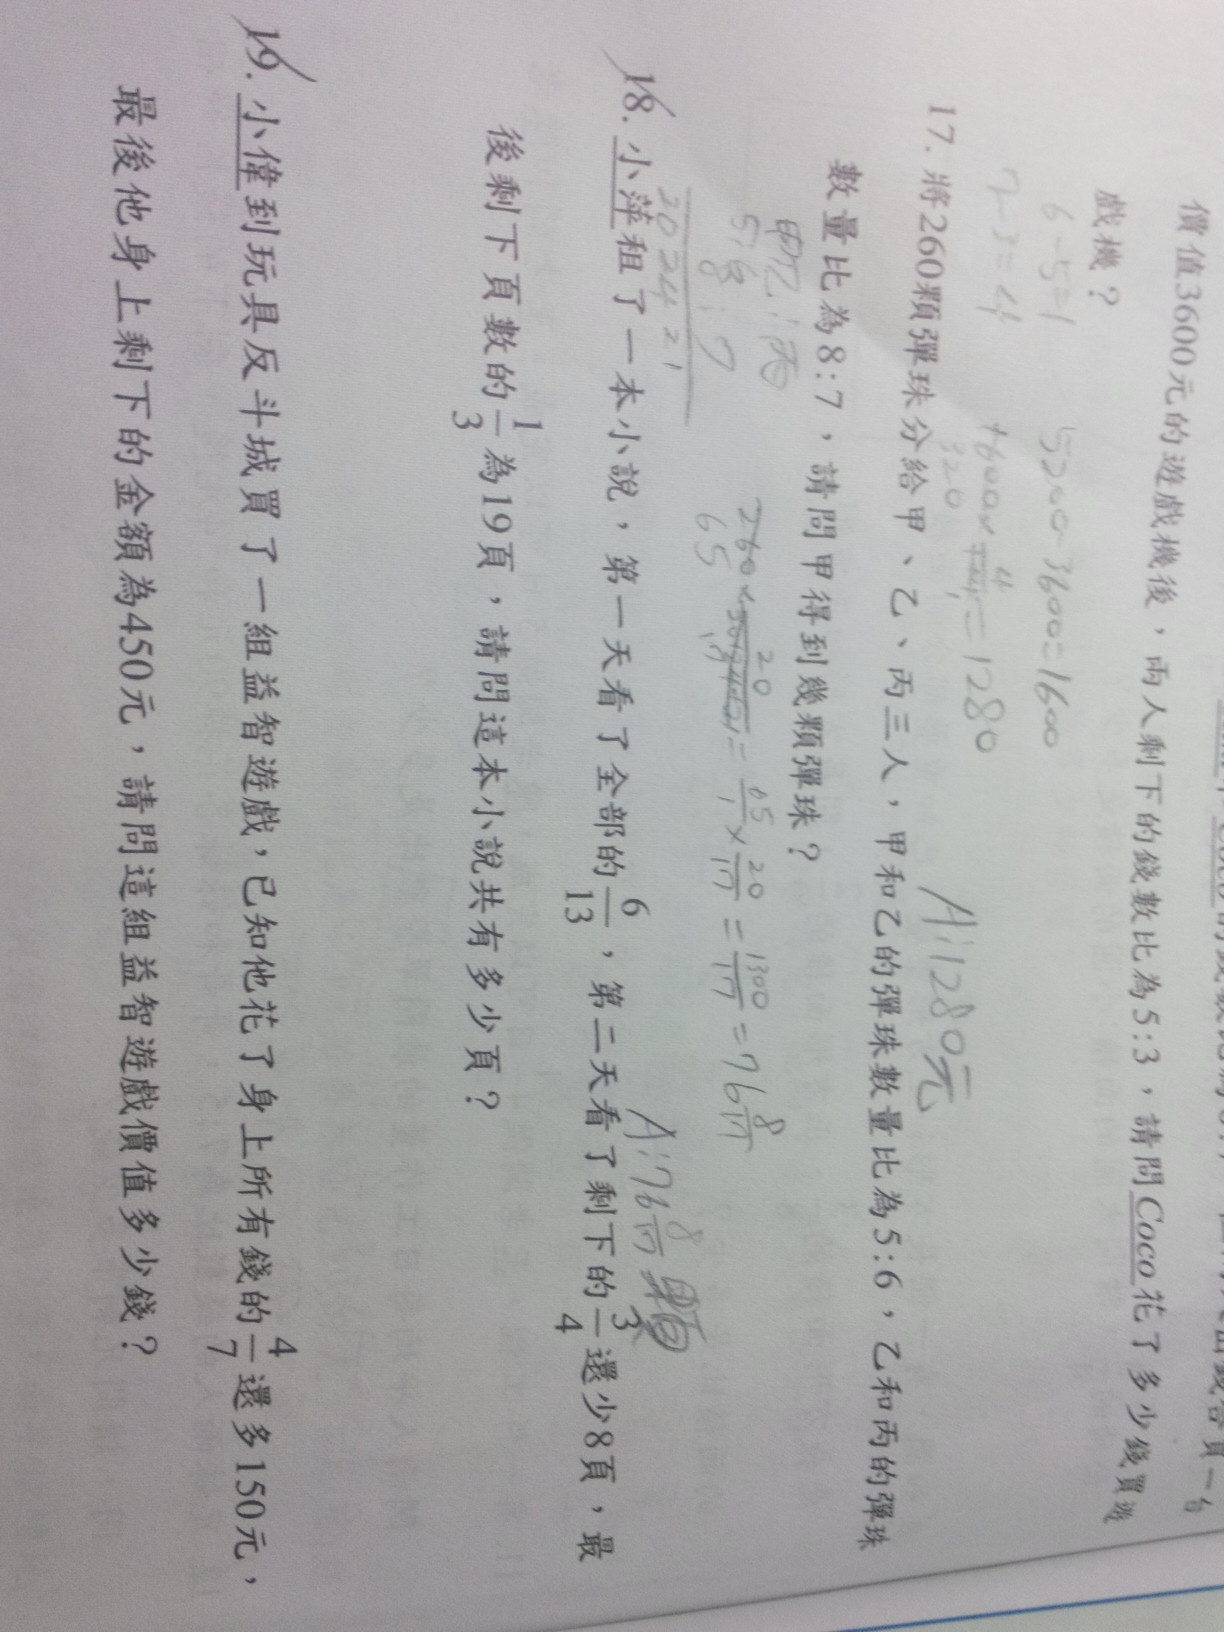 價值3600元的遊戲機後，兩人剩下的錢數比為5:3，請問Coco花了多少錢買遊
戲機？
6-5=1 5200-3600=1600
7-3=4
320
=1280
A:1280元
17. 將260顆彈珠分給甲、乙、丙三人，甲和乙的彈珠數量比為5:6，乙和丙的彈珠
數量比為8:7，請問甲得到幾顆彈珠？
甲:乙:丙
5:6
8:7
20 24 21
260×20/ = 65/1×20/17=1300/17=76 8/17
65
A:76 8/17 顆
18. 小萍租了一本小說，第一天看了全部的6/13，第二天看了剩下的3/4還少8頁，最
後剩下頁數的1/3為19頁，請問這本小說共有多少頁？
19. 小偉到玩具反斗城買了一組益智遊戲，已知他花了身上所有錢的4/7還多150元，
最後他身上剩下的金額為450元，請問這組益智遊戲價值多少錢？